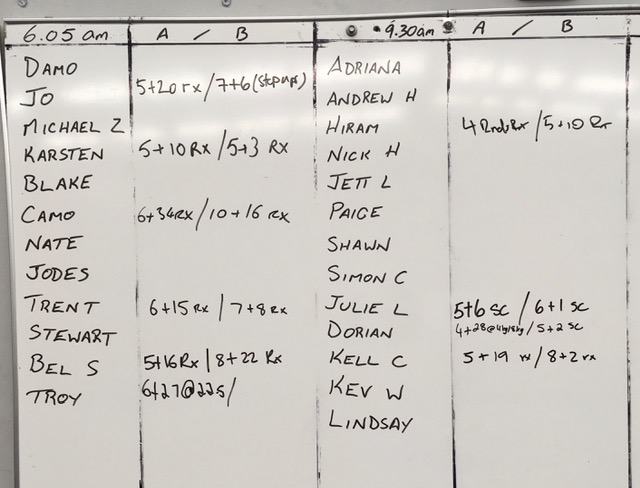 6.05 am A / B
DAMO
5+20 rx / 7+6 (step ups)
JO
MICHAEL Z
KARSTEN 5+10 Rx / 5+3 Rx
BLAKE
CAMO 6+34 RX / 10+16 RX
NATE
JODES
TRENT 6+15 Rx / 7+8 Rx
STEWART
BEL S 5+16 Rx / 8+22 Rx
TROY 6+27@22.5 /
9.30am A / B
ADRIANA
ANDREW H
HIRAM 4 Rx / 5+10 Rx
NICK H
JETT L
PAIGE
SHAWN
SIMON C
JULIE L 5+6 SC / 6+1 SC
DORIAN 4+28 / 5+2 SC
KELL C 5+19 rx / 8+2 rx
KEV W
LINDSAY